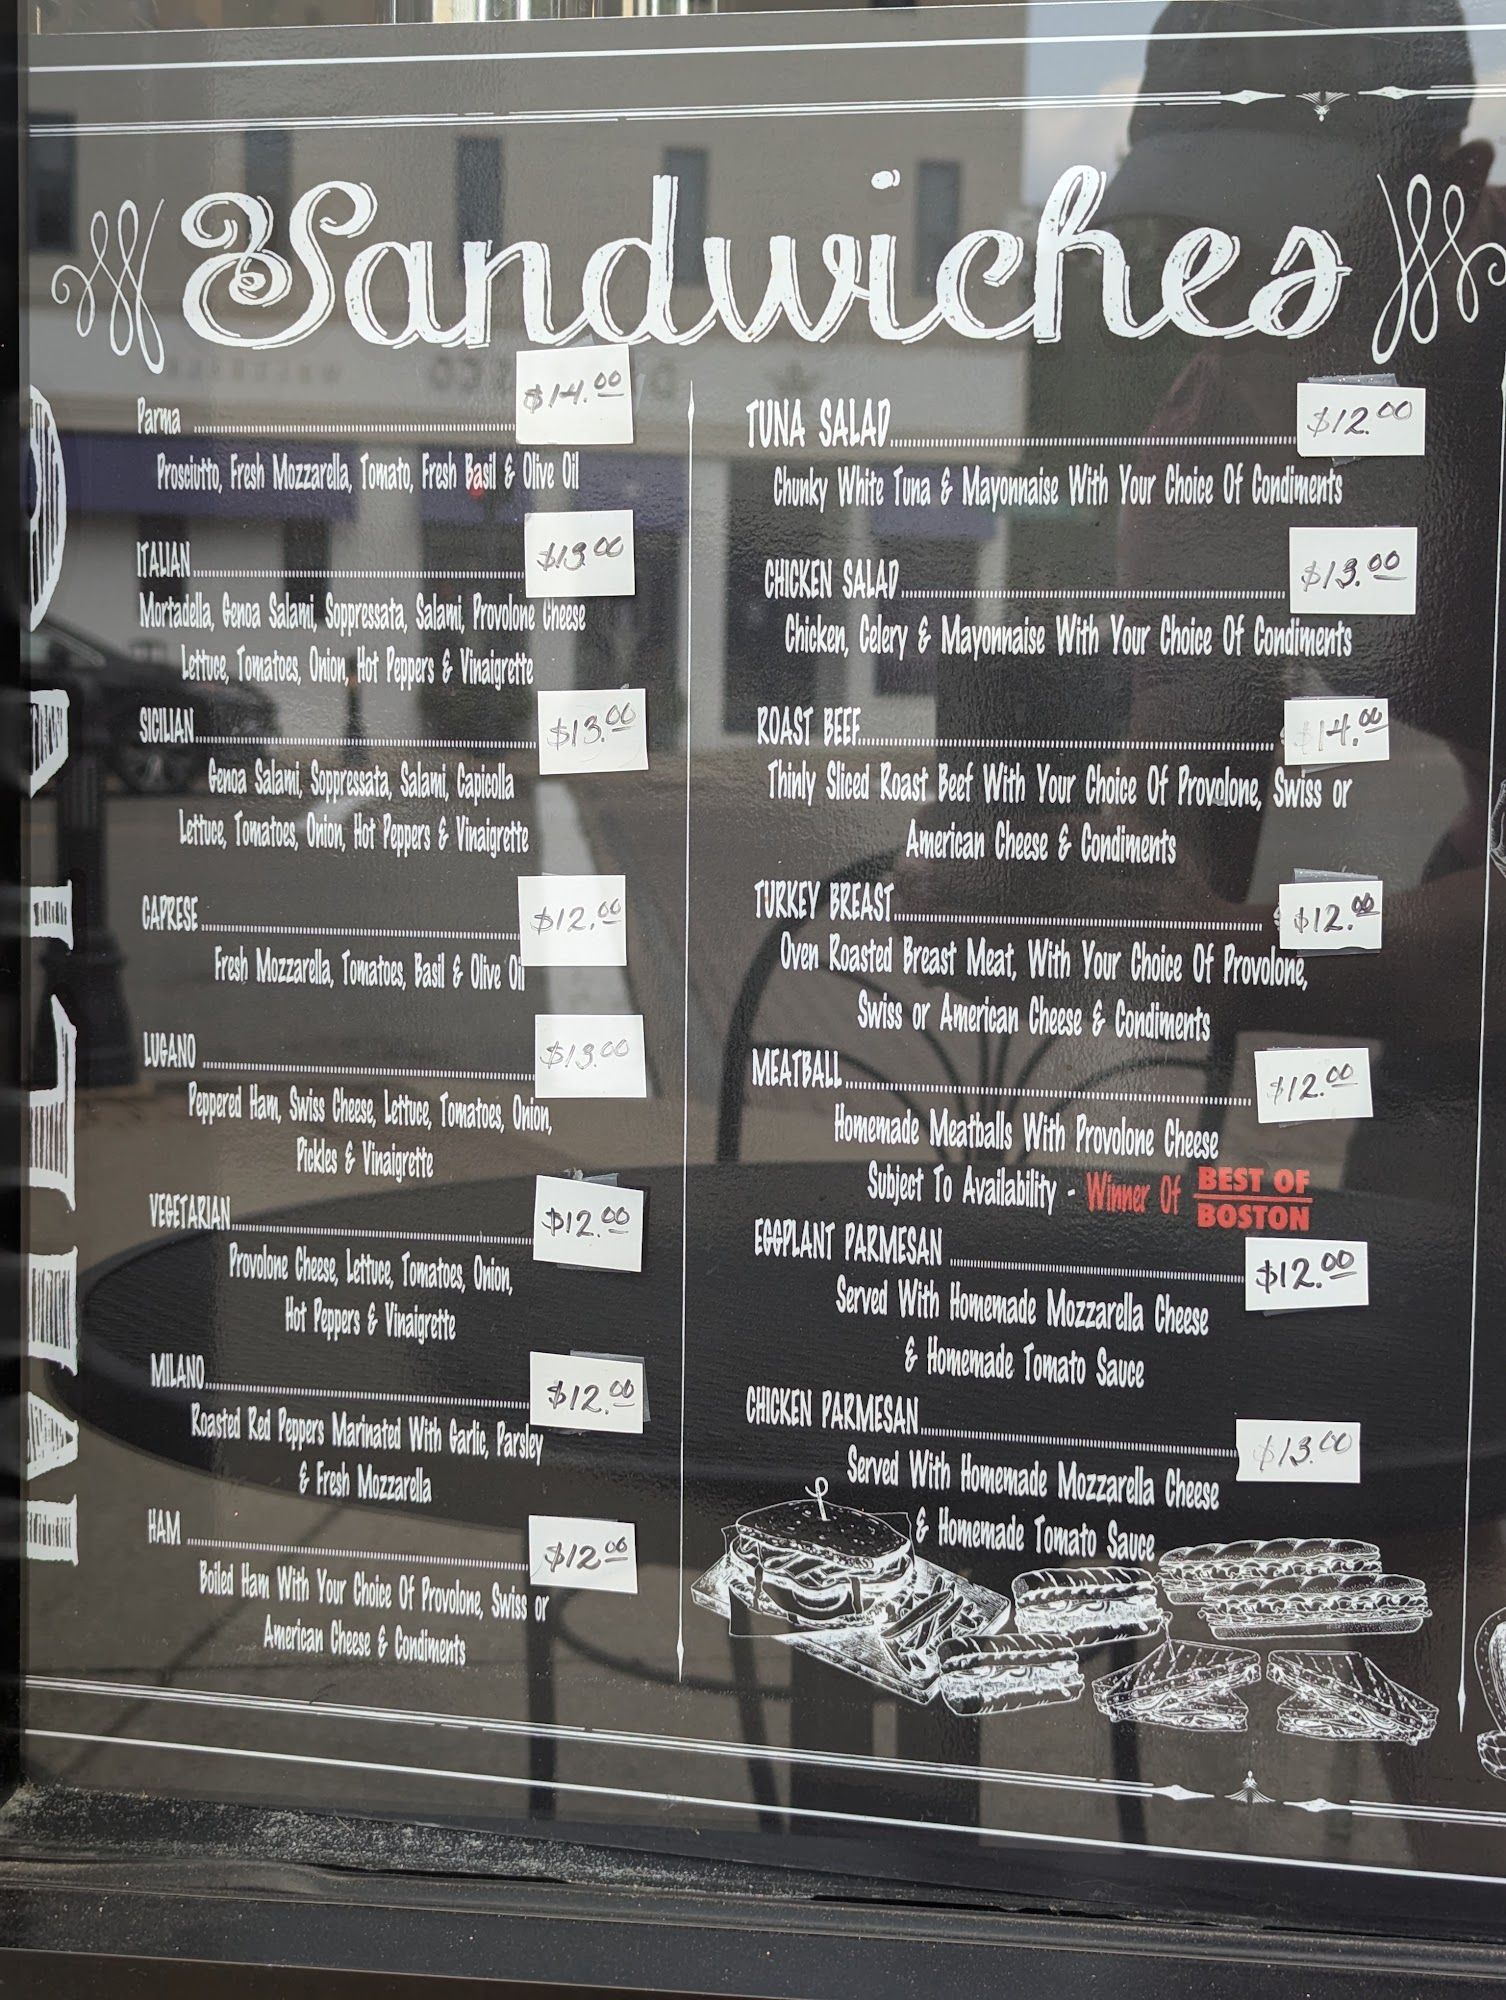 Sandwiches
Parma $14.00
Prosciutto, Fresh Mozzarella, Tomato, Fresh Basil & Olive Oil
ITALIAN $13.00
Mortadella, Genoa Salami, Soppressata, Salami, Provolone Cheese
Lettuce, Tomatoes, Onion, Hot Peppers & Vinaigrette
SICILIAN $13.00
Genoa Salami, Soppressata, Salami, Capicolla
Lettuce, Tomatoes, Onion, Hot Peppers & Vinaigrette
CAPRESE $12.00
Fresh Mozzarella, Tomatoes, Basil & Olive Oil
LUGANO $13.00
Peppered Ham, Swiss Cheese, Lettuce, Tomatoes, Onion,
Pickles & Vinaigrette
VEGETARIAN $12.00
Provolone Cheese, Lettuce, Tomatoes, Onion,
Hot Peppers & Vinaigrette
MILANO $12.00
Roasted Red Peppers Marinated With Garlic, Parsley
& Fresh Mozzarella
HAM $12.00
Boiled Ham With Your Choice Of Provolone, Swiss or
American Cheese & Condiments
TUNA SALAD $12.00
Chunky White Tuna & Mayonnaise With Your Choice Of Condiments
CHICKEN SALAD $13.00
Chicken, Celery & Mayonnaise With Your Choice Of Condiments
ROAST BEEF $14.00
Thinly Sliced Roast Beef With Your Choice Of Provolone, Swiss or
American Cheese & Condiments
TURKEY BREAST $12.00
Oven Roasted Breast Meat, With Your Choice Of Provolone,
Swiss or American Cheese & Condiments
MEATBALL $12.00
Homemade Meatballs With Provolone Cheese
Subject To Availability - Winner Of BEST OF BOSTON
EGGPLANT PARMESAN $12.00
Served With Homemade Mozzarella Cheese
& Homemade Tomato Sauce
CHICKEN PARMESAN $13.00
Served With Homemade Mozzarella Cheese
& Homemade Tomato Sauce